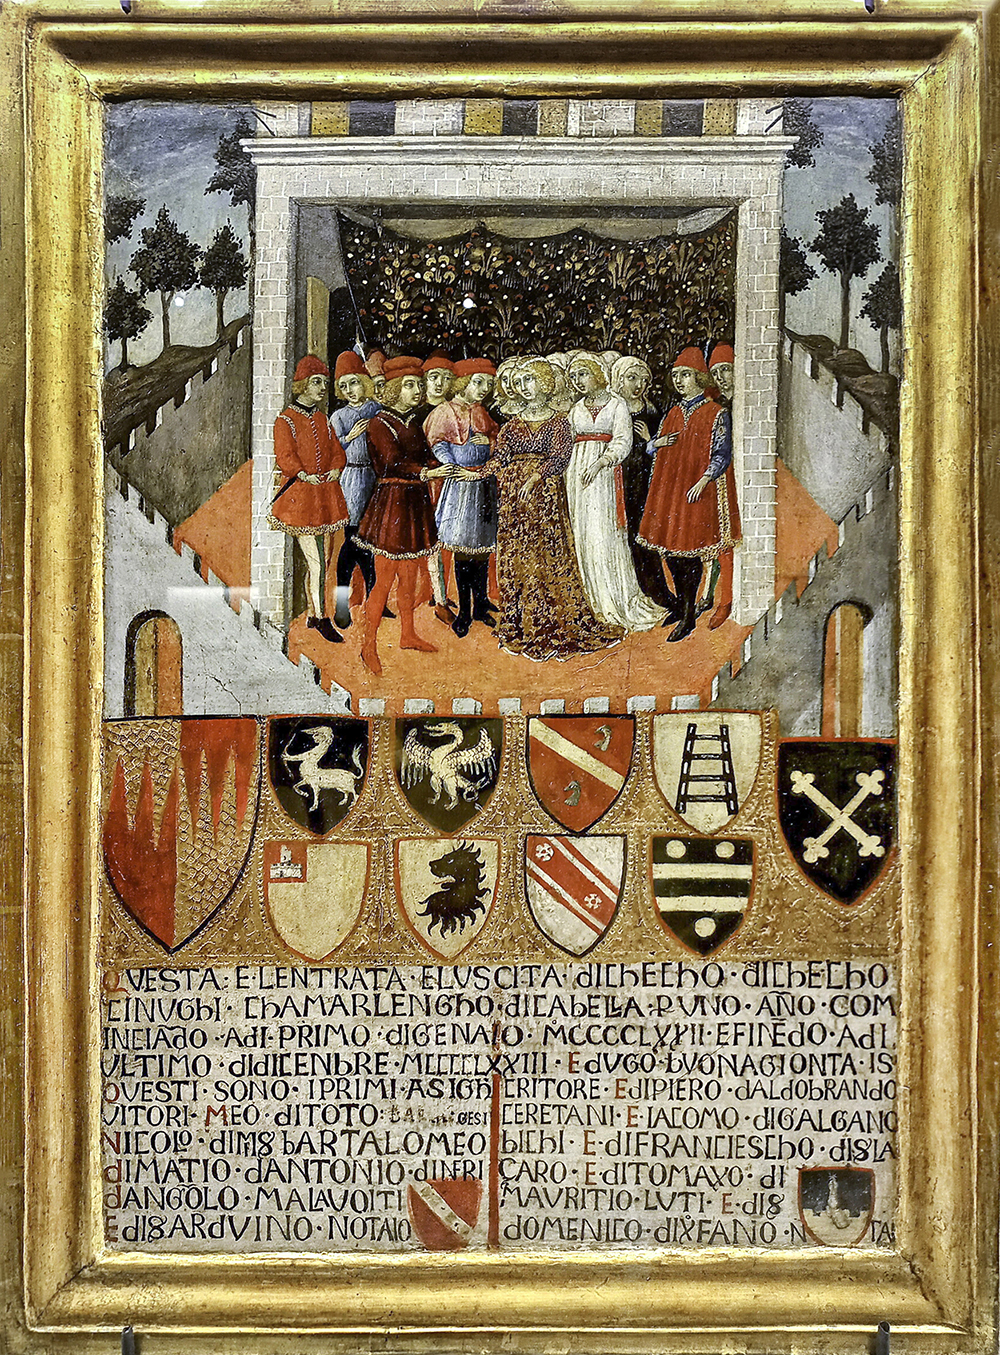 QVESTA · E · LENTRATA · ELUSCITA · diCHECHO · diCHECHO
CINUGHI · CHAMARLENGHO · diCABELLA · P UNO · AÑO · COM
INCIĀDO · Adi · PRIMO · diGENAIO · MCCCCLXXII · E FINĒDO · Adi
VLTIMO · didICENbRE · MCCCCLXXIII · EdUGO · bVONAGIONTA · IS
QVESTI · SONO · IPRIMI · ASIGH CRITORE · E diPIERO · dALdObRANdO
VITORI · MEO · diTOTO · CERETANI · E · IACOMO · diGALGANO
NICOLO · diMS bARTALOMEO bICHI · E · diFRANCIESCHO · diS LA
diMATIO · dANTONIO · diNRI ÇARO · E · diTOMAXO · di
dANGOLO · MALAVOLTI MAURITIO · LUTI · E · diS
E diS ARdVINO · NOTAIO DOMENICO · diXFANO · N TA